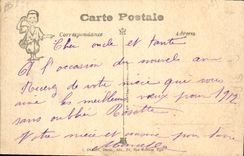 Carte Postale
Correspondance
Adresse
Cher oncle et tante
A l'occasion du nouvel an
Recevez de votre nièce que vous
aime les meilleurs vœux pour 1912
sans oublier
Votre nièce et cousine pour la vie